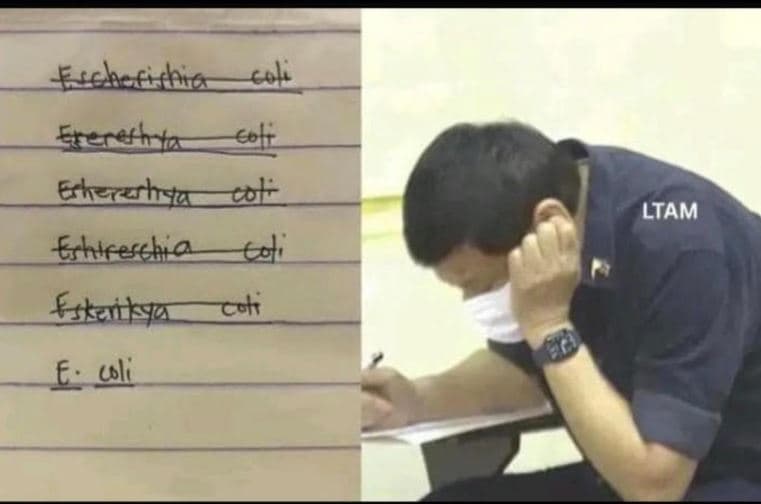 Escherishia coli
Erereshya coli
Eshereshya coli
Eshireschia coli
Eskerikya coli
E. coli
LTAM